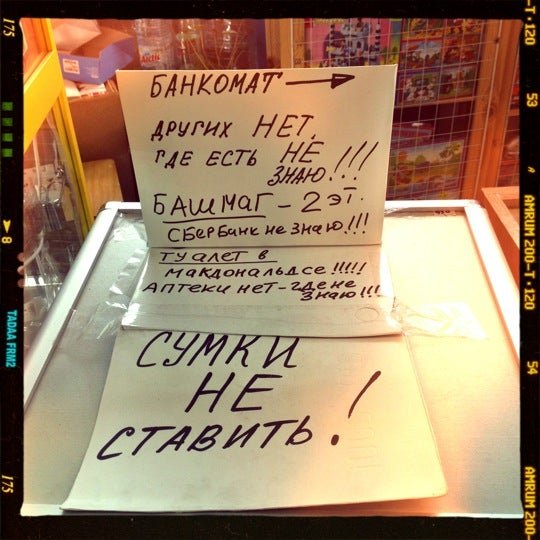 БАНКОМАТ →
ДРУГИХ НЕТ.
ГДЕ ЕСТЬ НЕ
ЗНАЮ!!!
БАШМАГ - 2 ЭТ.
СБЕРБАНК НЕ ЗНАЮ!!!
ТУАЛЕТ В
МАКДОНАЛЬДСЕ!!!!!
АПТЕКИ НЕТ - ГДЕ НЕ
ЗНАЮ!!!
СУМКИ
НЕ
СТАВИТЬ!
175
8
TADAA FRM2
175
T·120
53
AMRUM 200-T·120
54
AMRUM 200-